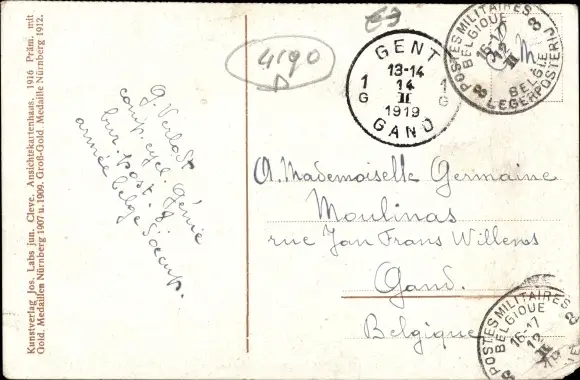 Kunstverlag Jos. Labs jun. Cleve. Ansichtskartenhaus. 1916 Präm. mit
Gold. Medaillen Nürnberg 1907 u. 1909. Groß-Gold. Medaille Nürnberg 1912.
4190
GENT
13-14
14
II
1919
1 G
1 G
GAND
POSTES MILITAIRES
BELGIQUE
16-17
12
II
BELGIE
LEGERPOSTERIJ
8
8
comp. cycl. Génie
bur. post. 9.
armée belge d'occup.
A Mademoiselle Germaine
Moulinas
rue Jan Frans Willems
Gand.
Belgique
POSTES MILITAIRES
BELGIQUE
16-17
12
II
8
8